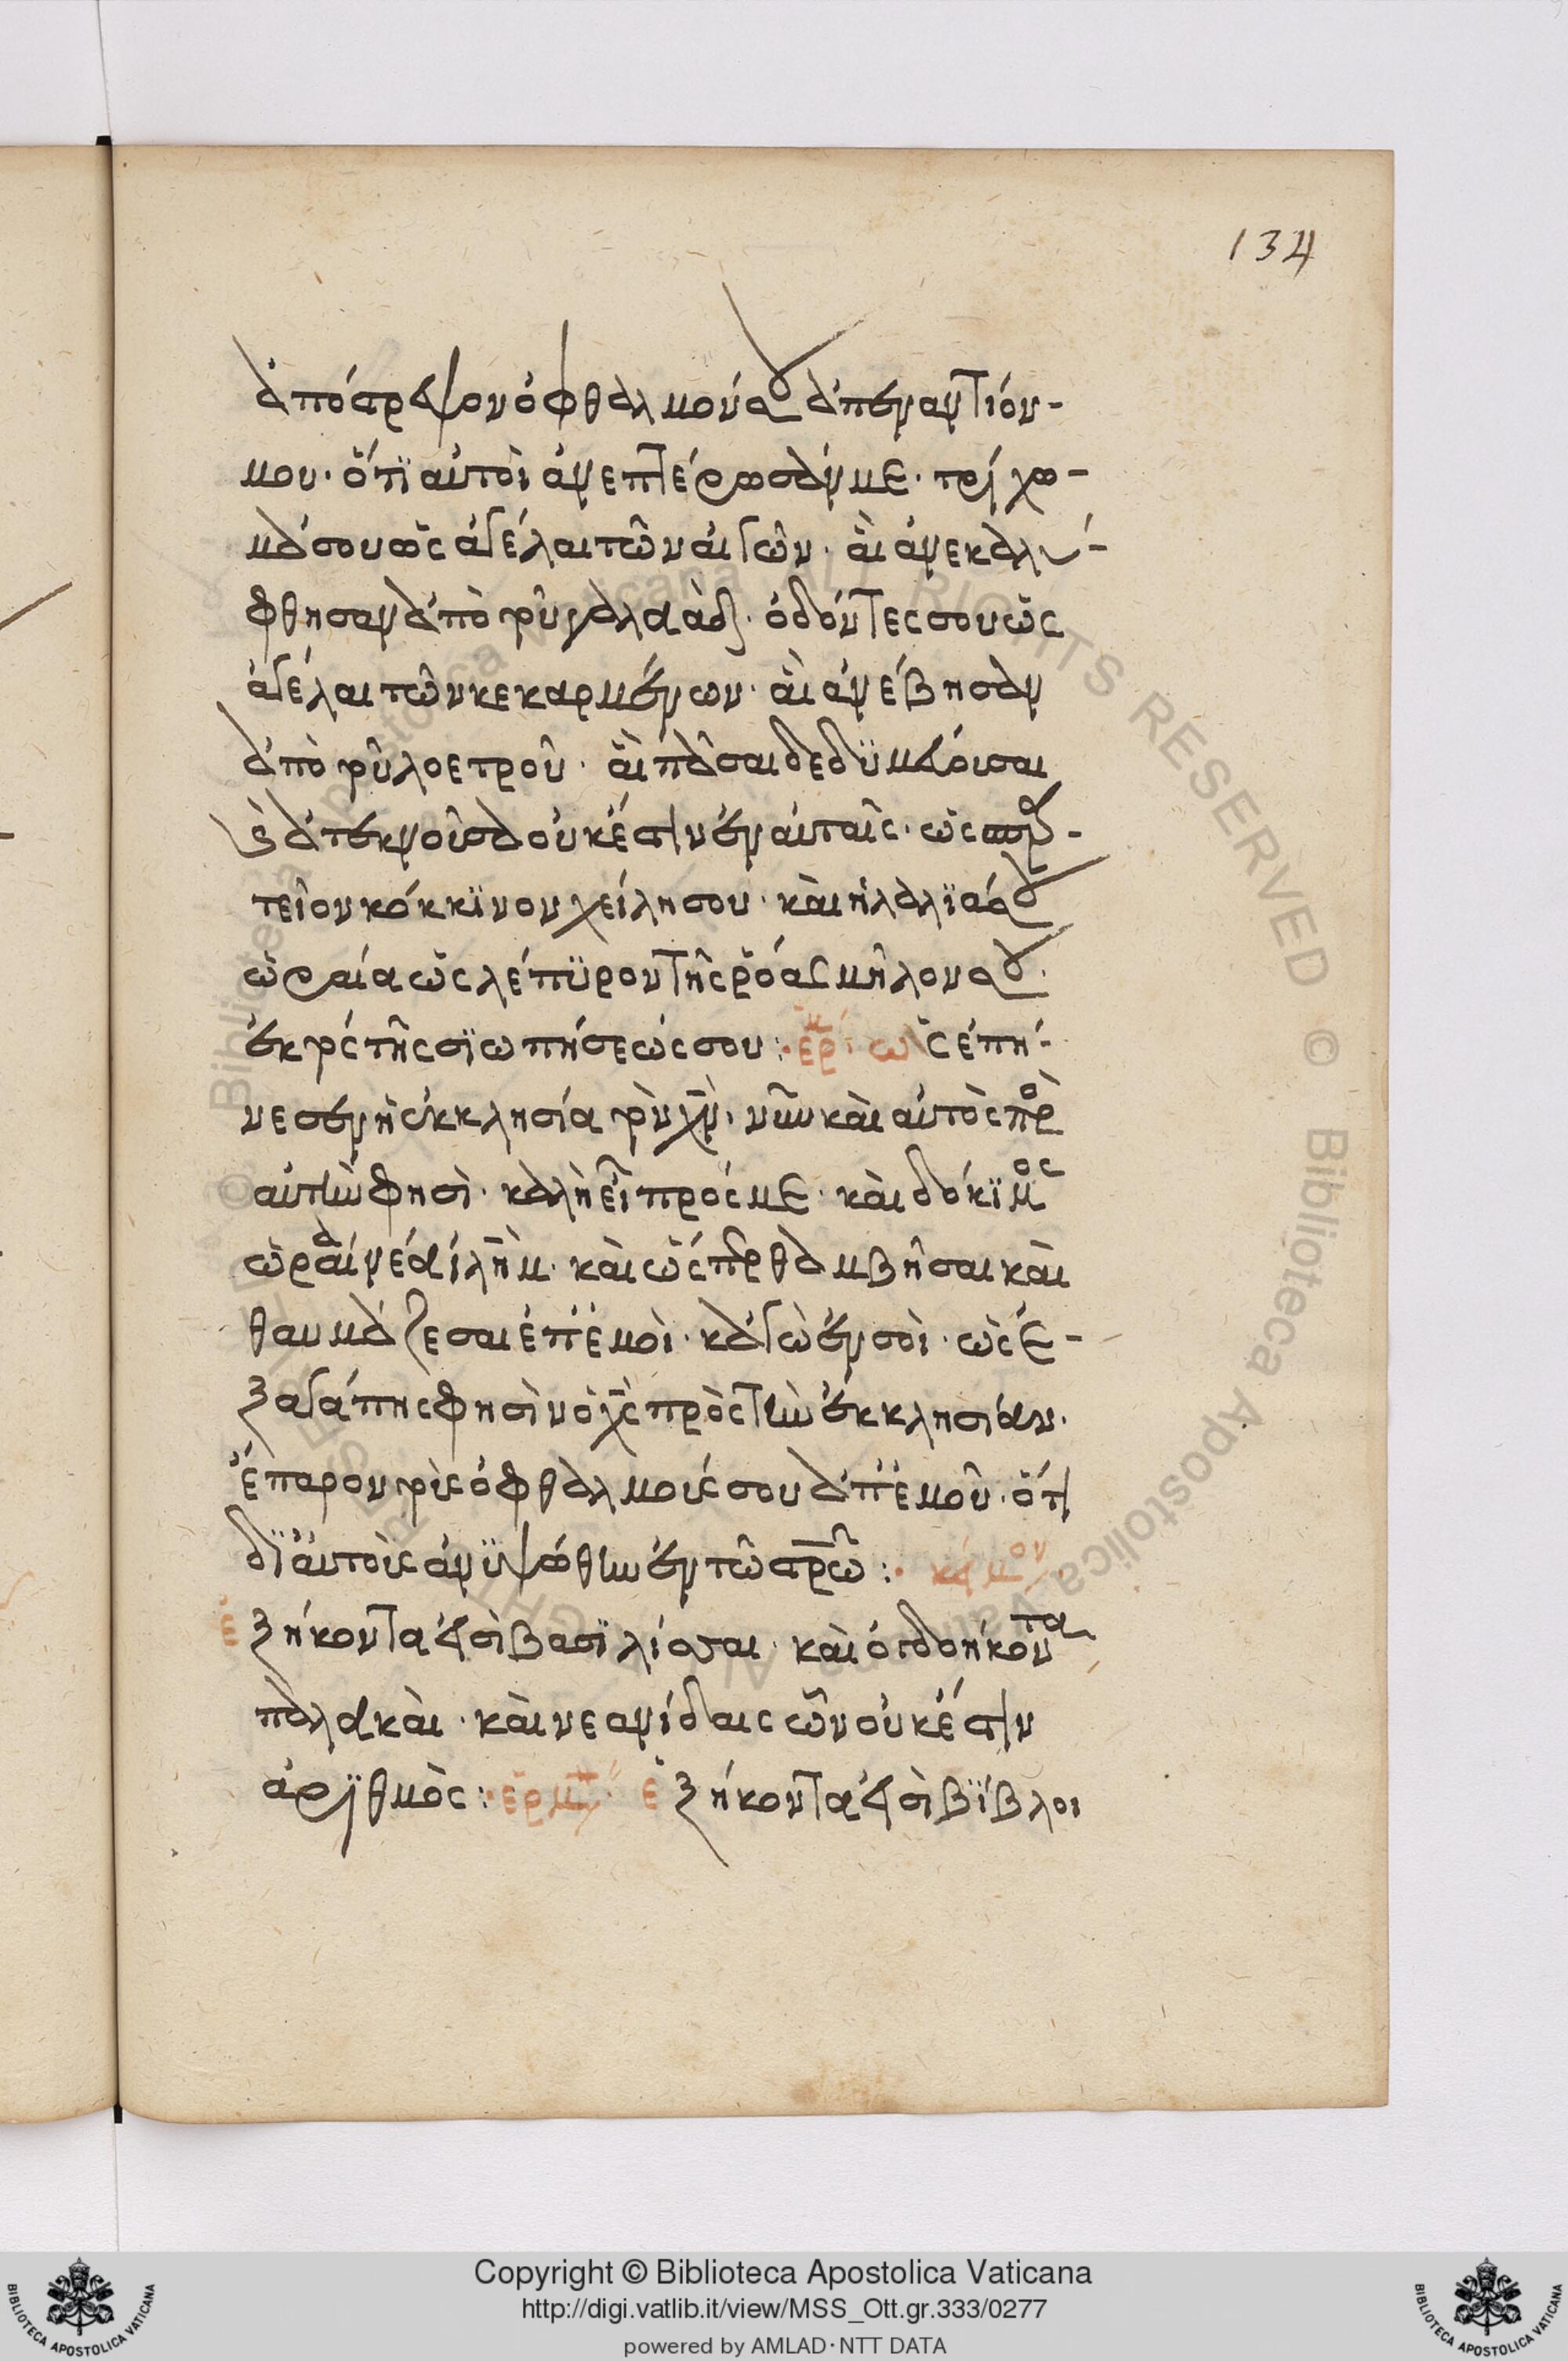 134
ἀπόστρεψον ὀφθαλμούς σου ἀπεναντίον
μου· ὅτι αὐτοὶ ἀνεπτέρωσάν με· τρίχω-
μά σου ὡς ἀγέλαι τῶν αἰγῶν· αἳ ἀνεκαλύ-
φθησαν ἀπὸ τοῦ γαλαάδ· ὀδόντες σου ὡς
ἀγέλαι τῶν κεκαρμένων· αἳ ἀνέβησαν
ἀπὸ τοῦ λοετροῦ· αἳ πᾶσαι δεδυμεύουσαι
καὶ ἀτεκνοῦσα οὐκ ἔστιν ἐν αὐταῖς· ὡς σπαρ-
τεῖον κόκκινον χείλη σου· καὶ ἡ λαλιά σου
ὡραία ὡς λέπυρον τῆς ῥόας μῆλόν σου·
ἐκτὸς τῆς σιωπήσεώς σου:· ἑρμ ὡς ἐπή-
νεσεν ἡ ἐκκλησία τὸν χν· νῦν καὶ αὐτὸς πρὸ
αὐτὴν φησὶ· καλὴ εἶ πρός με· καὶ δόκιμος
ὡραία· νέα ἰλημ· καὶ ὡς περ θαμβῆσαι καὶ
θαυμάζεσαι ἐπ' ἐμοὶ· κἀγὼ ἐν σοὶ· ὡς ἐ-
ξαγάπης φησὶν ὁ χς πρὸς τὴν ἐκκλησίαν·
ἔπαρον τοὺς ὀφθαλμούς σου ἀπ' ἐμοῦ· ὅτι
δι' αὐτοὺς ἀνυψώθην ἐν τῶ στρω:· κείμον
ἑξήκοντα εἰσὶ βασιλίσσαι· καὶ ὀγδοήκοντα
παλακαὶ· καὶ νεανίδαις ὧν οὐκ ἔστιν
ἀριθμὸς:· ἑρμ ἑξήκοντα εἰσὶ βίβλοι
Copyright © Biblioteca Apostolica Vaticana
http://digi.vatlib.it/view/MSS_Ott.gr.333/0277
powered by AMLAD·NTT DATA